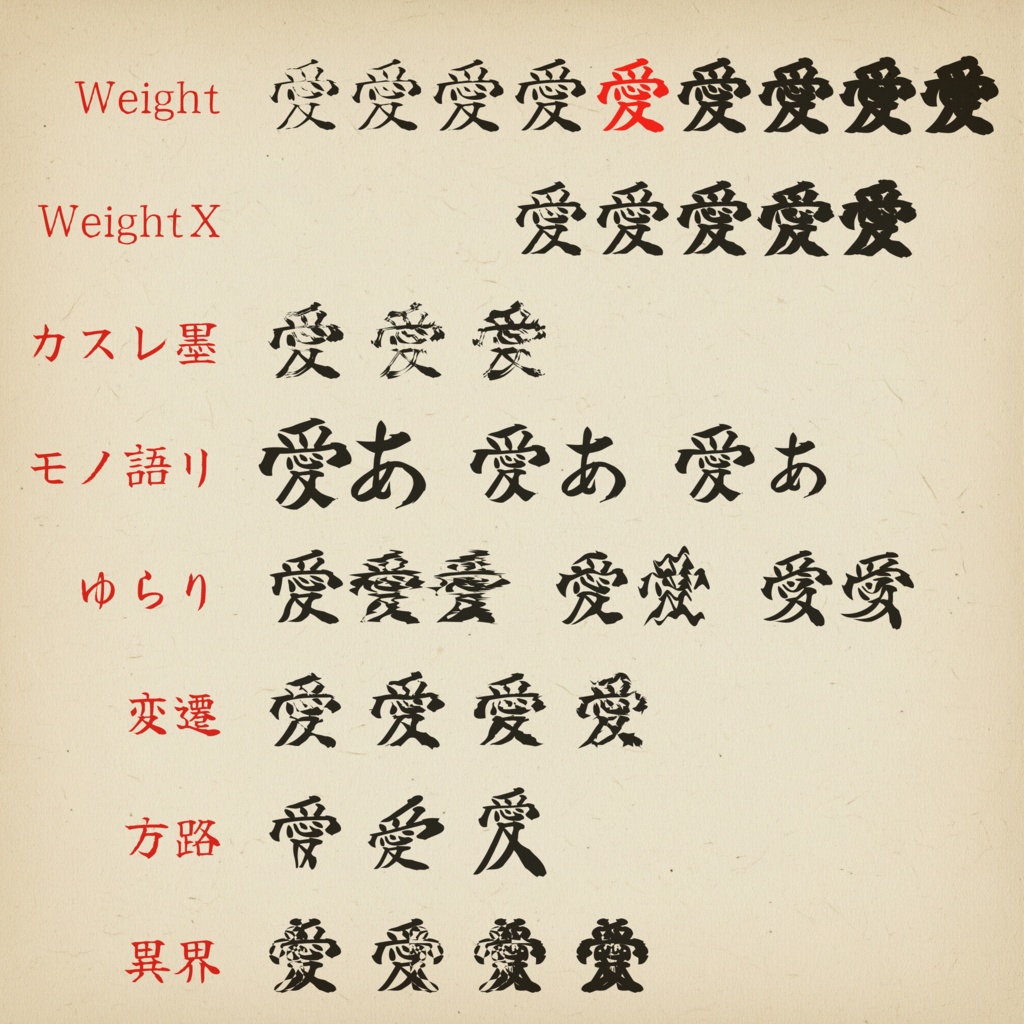 Weight 愛愛愛愛愛愛愛愛愛
WeightX 愛愛愛愛愛
カスレ墨 愛 愛 愛
モノ語リ 愛あ 愛あ 愛あ
ゆらり 愛愛愛 愛愛 愛愛
変遷 愛 愛 愛 愛
方路 愛 愛 愛
異界 愛 愛 愛 愛